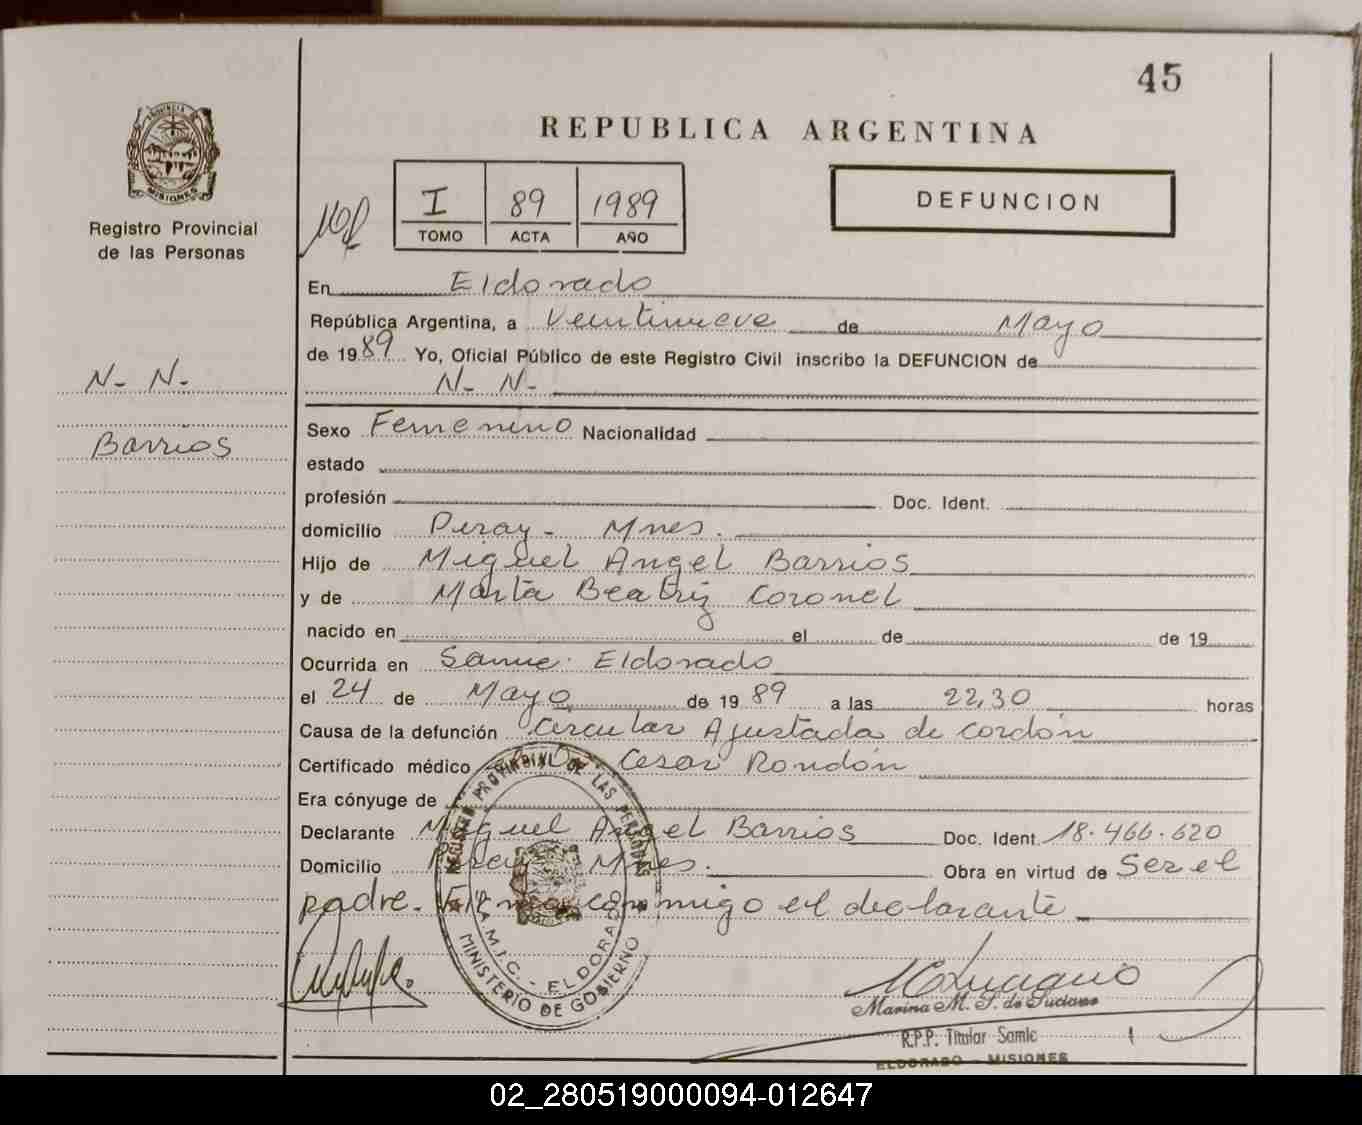 45
REPUBLICA ARGENTINA
PROVINCIA DE
MISIONES
Registro Provincial
de las Personas
I 89 1989
TOMO ACTA AÑO
DEFUNCION
En Eldorado
República Argentina, a Veintinueve de Mayo
de 1989 Yo, Oficial Público de este Registro Civil inscribo la DEFUNCION de
N- N-
N- N-
Barrios
Sexo Femenino Nacionalidad
estado
profesión Doc. Ident.
domicilio Piray- Mnes.
Hijo de Miguel Angel Barrios
y de Marta Beatriz Coronel
nacido en el de de 19
Ocurrida en Samic. Eldorado
el 24 de Mayo de 1989 a las 22,30 horas
Causa de la defunción Circular Ajustada de cordón
Certificado médico Cesar Rondón
Era cónyuge de
Declarante Miguel Angel Barrios Doc. Ident. 18.466.620
Domicilio Piray Mnes. Obra en virtud de Ser el
padre. Firma conmigo el declarante
REGISTRO PROVINCIAL DE LAS PERSONAS
S.A.M.I.C. - ELDORADO
MINISTERIO DE GOBIERNO
Marina M. S. de Luciano
R.P.P. Titular Samic
ELDORADO - MISIONES
02_280519000094-012647